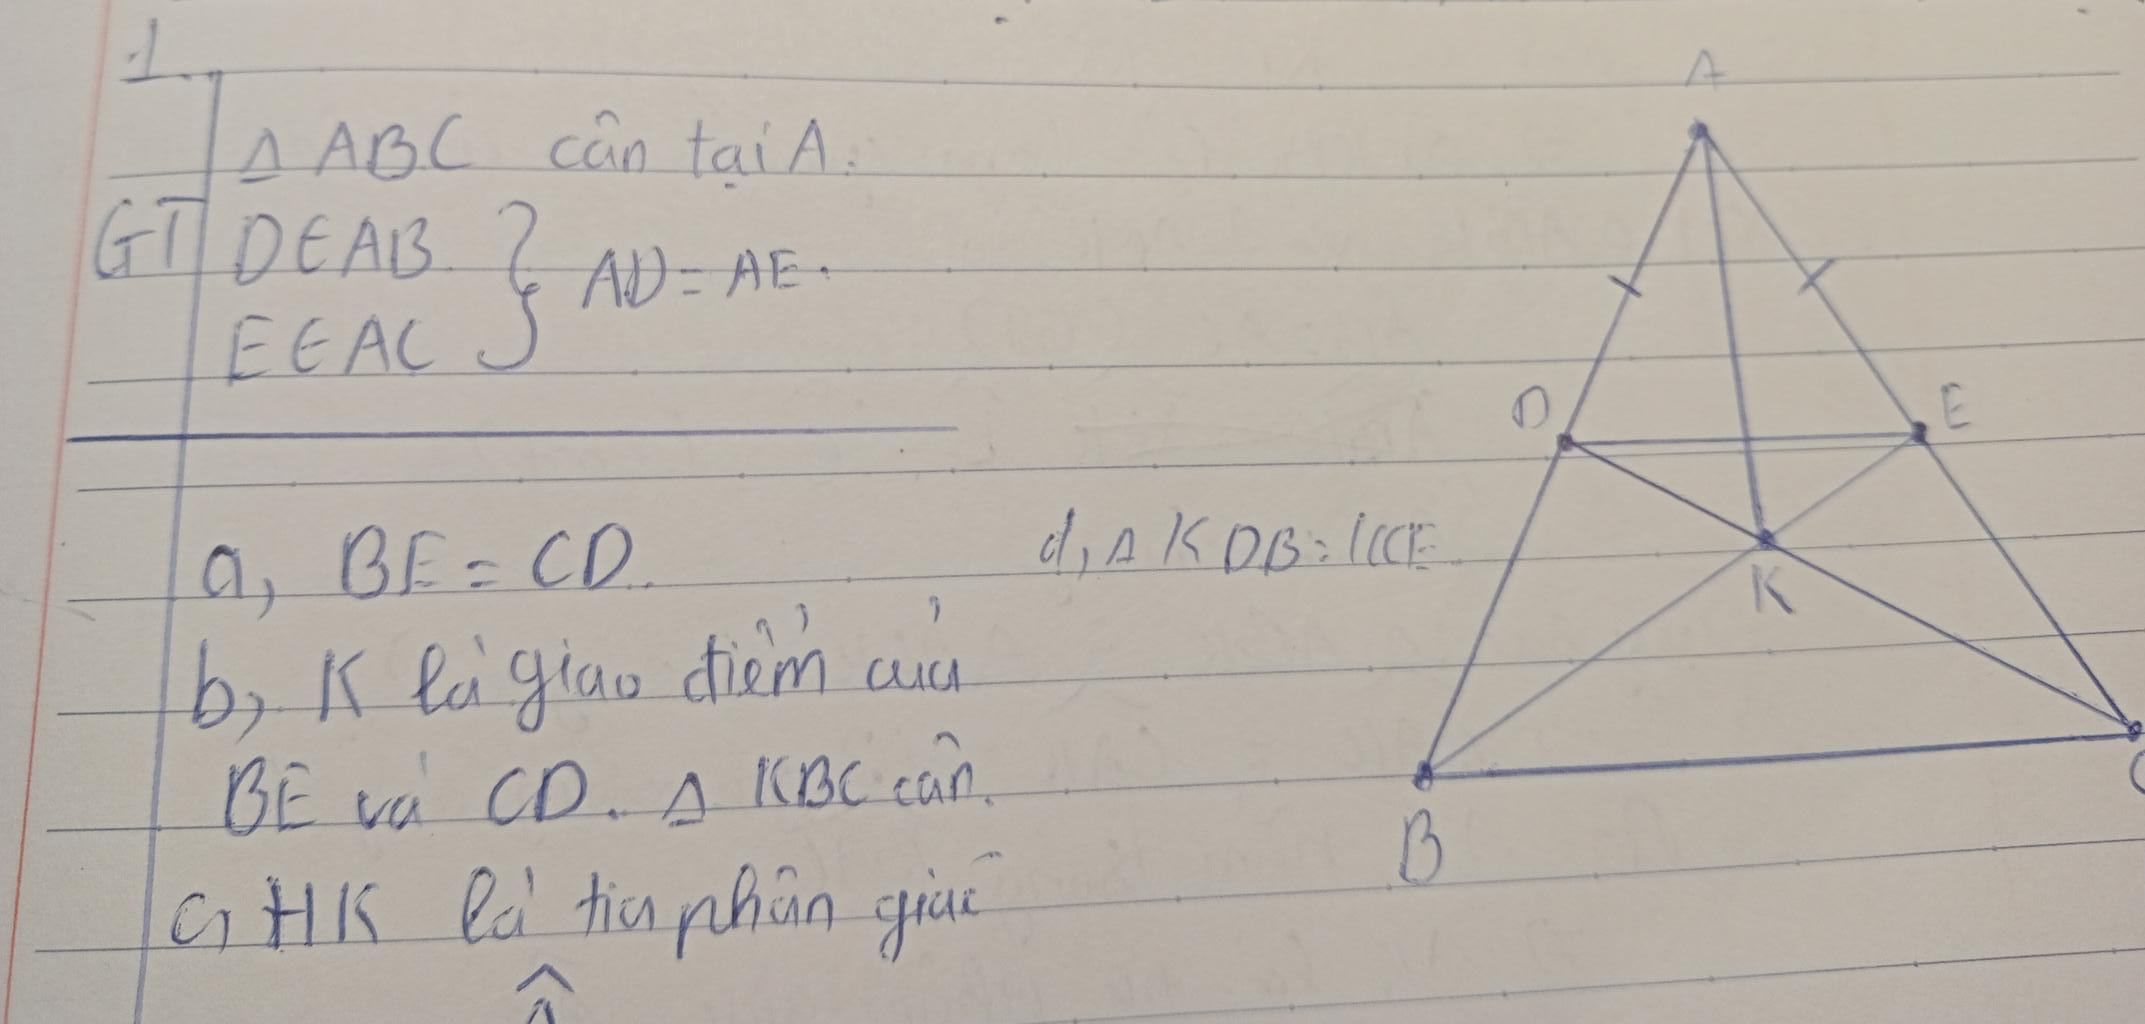 1.
Δ ABC cân tại A.
GT D∈AB } AD = AE.
E∈AC
a, BE = CD.
b, K là giao điểm của
BE và CD. Δ KBC cân.
c, HK là tia phân giác
Â
d, Δ KDB = KCE
A
D
E
K
B
C